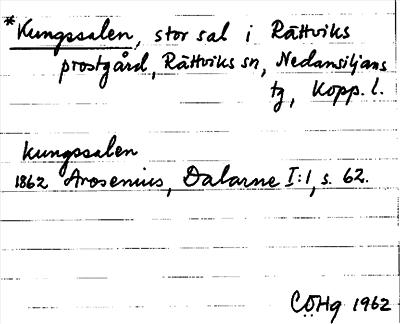 *Kungssalen, stor sal i Rättviks
prostgård, Rättviks sn, Nedansiljans
tg, Kopp. l.
Kungssalen
1862 Arosenius, Dalarne I:1, s. 62.
CÖHg 1962